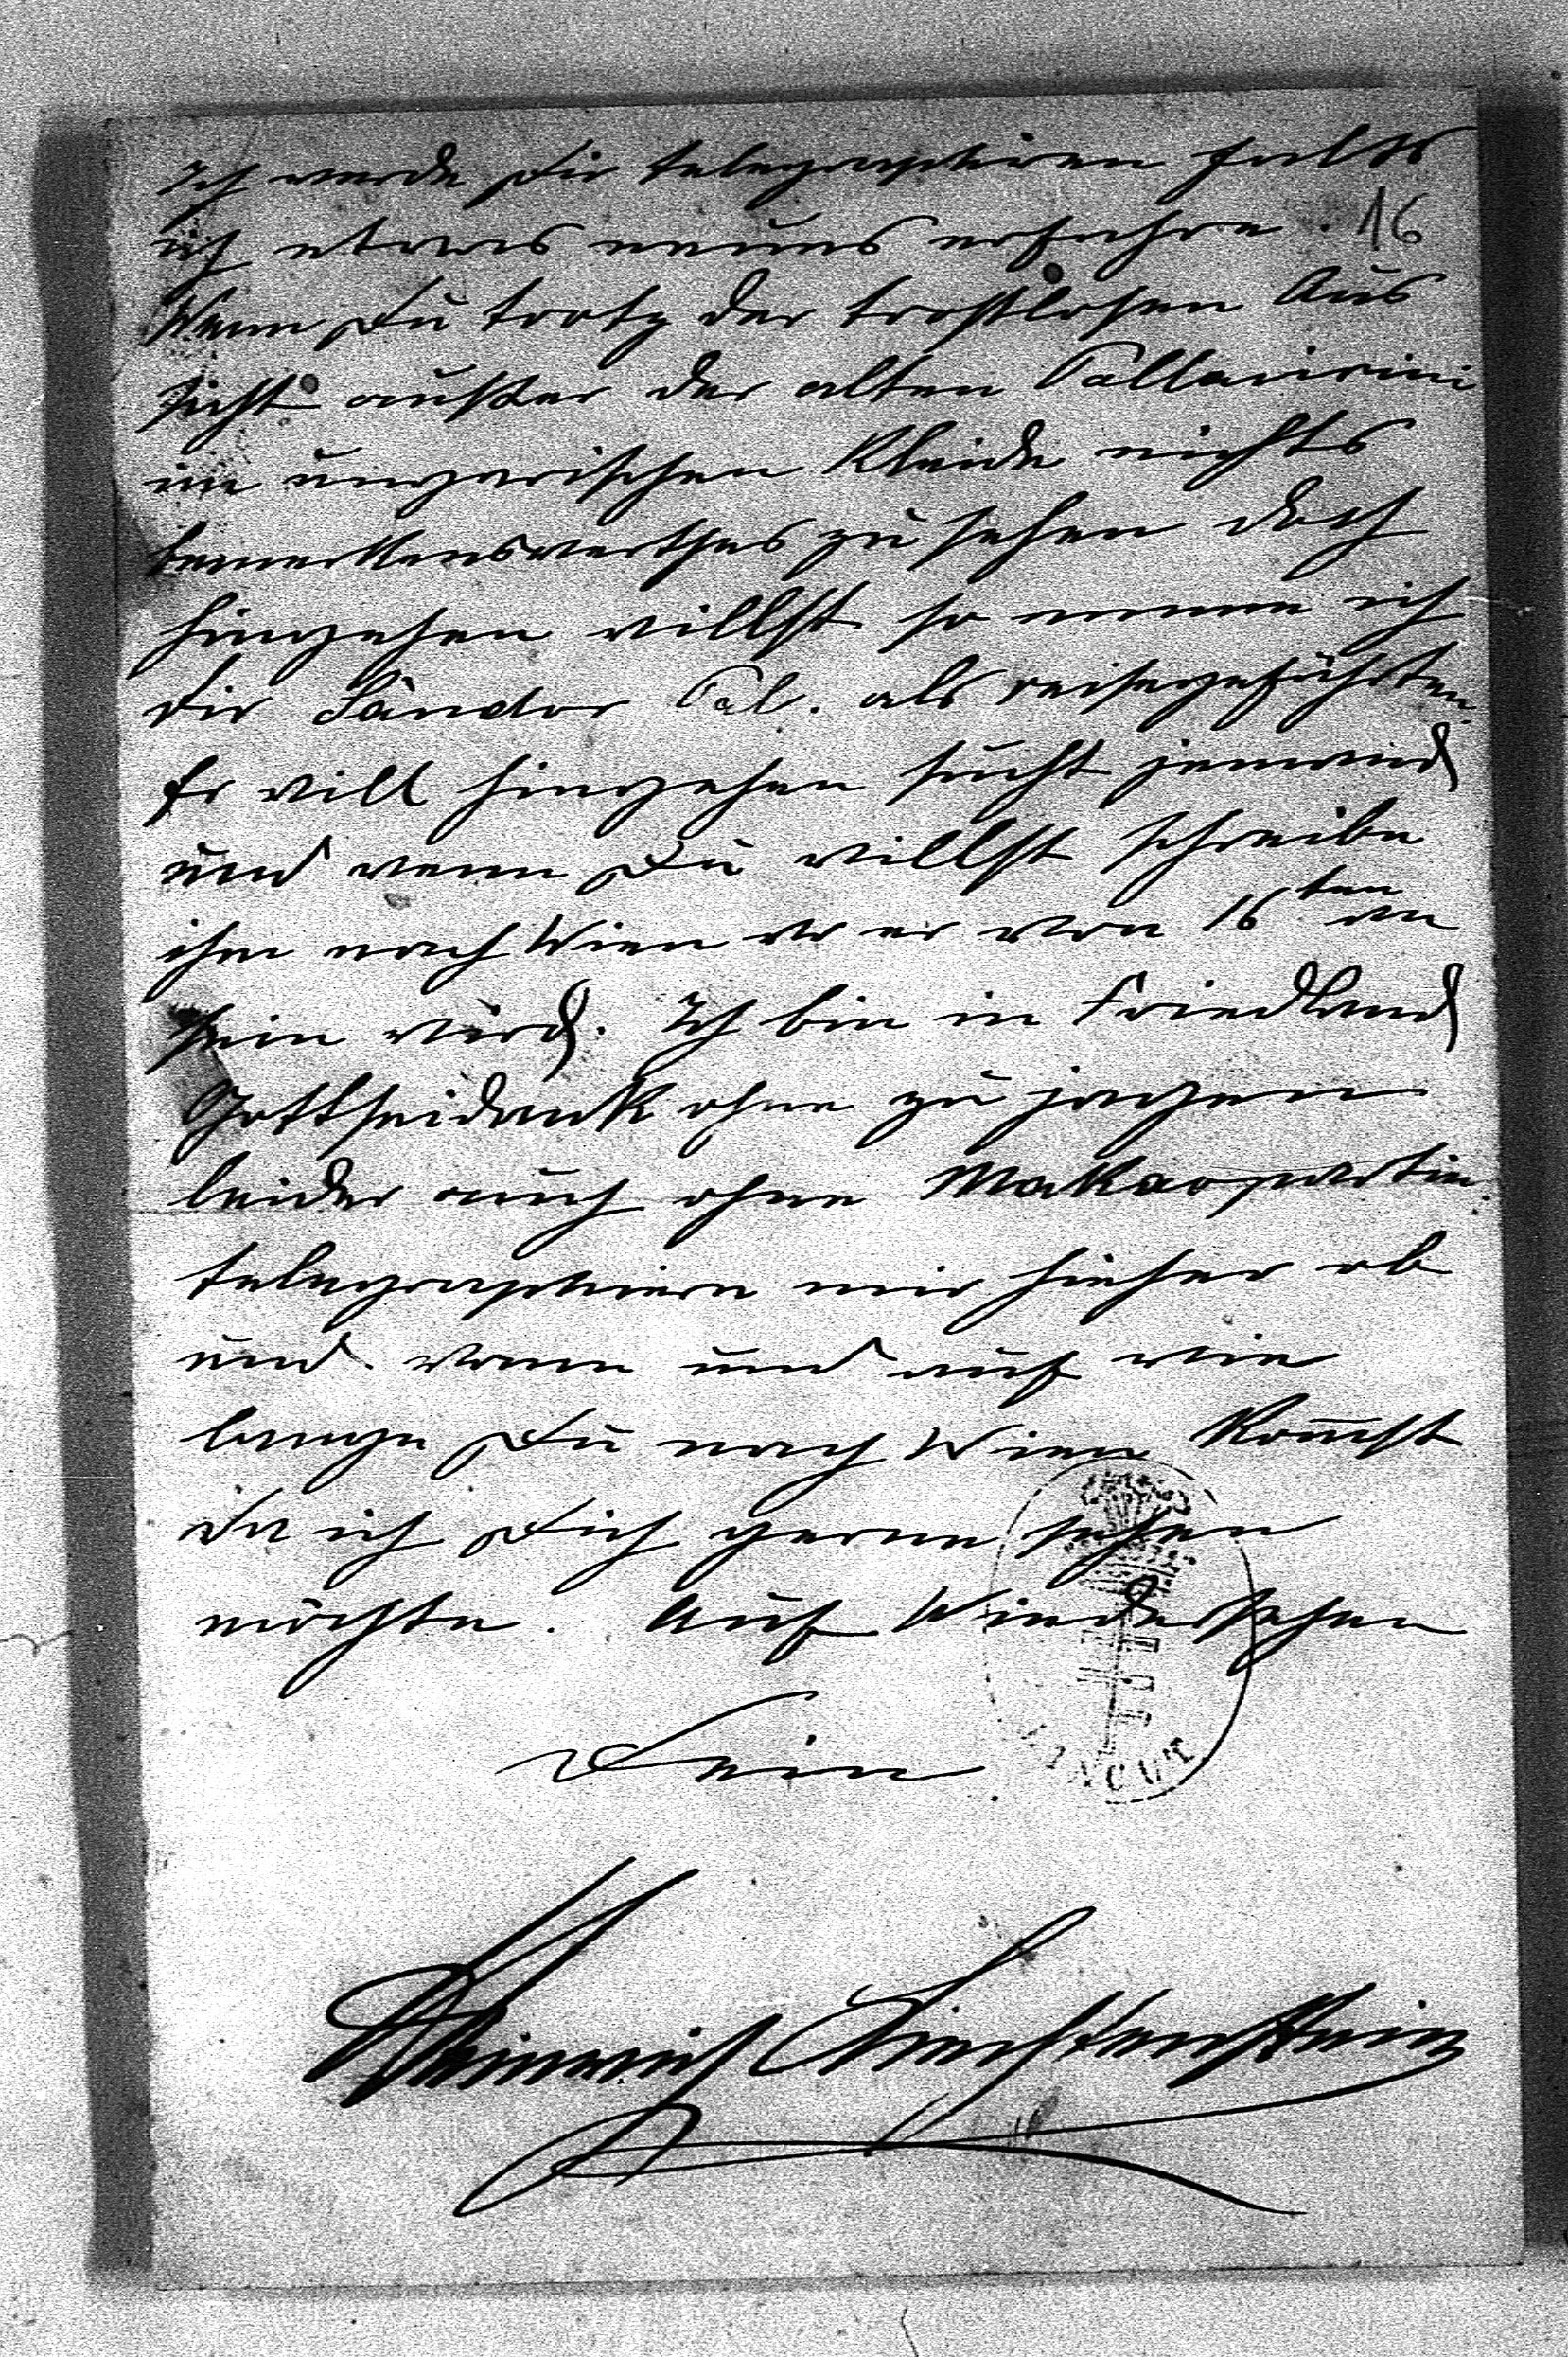 Ich werde Dir telegraphiren falls
ich etwas neues erfahre. 16
Wenn Du trotz der trostlosen Aus
sicht außer der alten Pallavicini
im ungarischen Kleide nichts
bemerkenswerthes zu sehen doch
hingehen willst so nenne ich
Dir Sándor Pal. als reisegefährten.
Er will hingehen sucht jemand
und wenn Du willst schreibe
ihm nach Wien wo er von 16ten an
sein wird. Ich bin in Friedland
Gottseidank ohne zu jagen
leider auch ohne Makaopartie.
telegraphiere mir hieher ob
und wann und auf wie
lange Du nach Wien kom̄st
da ich Dich gerne sehen
möchte. Auf Wiedersehen
Dein
Heinrich Liechtenstein